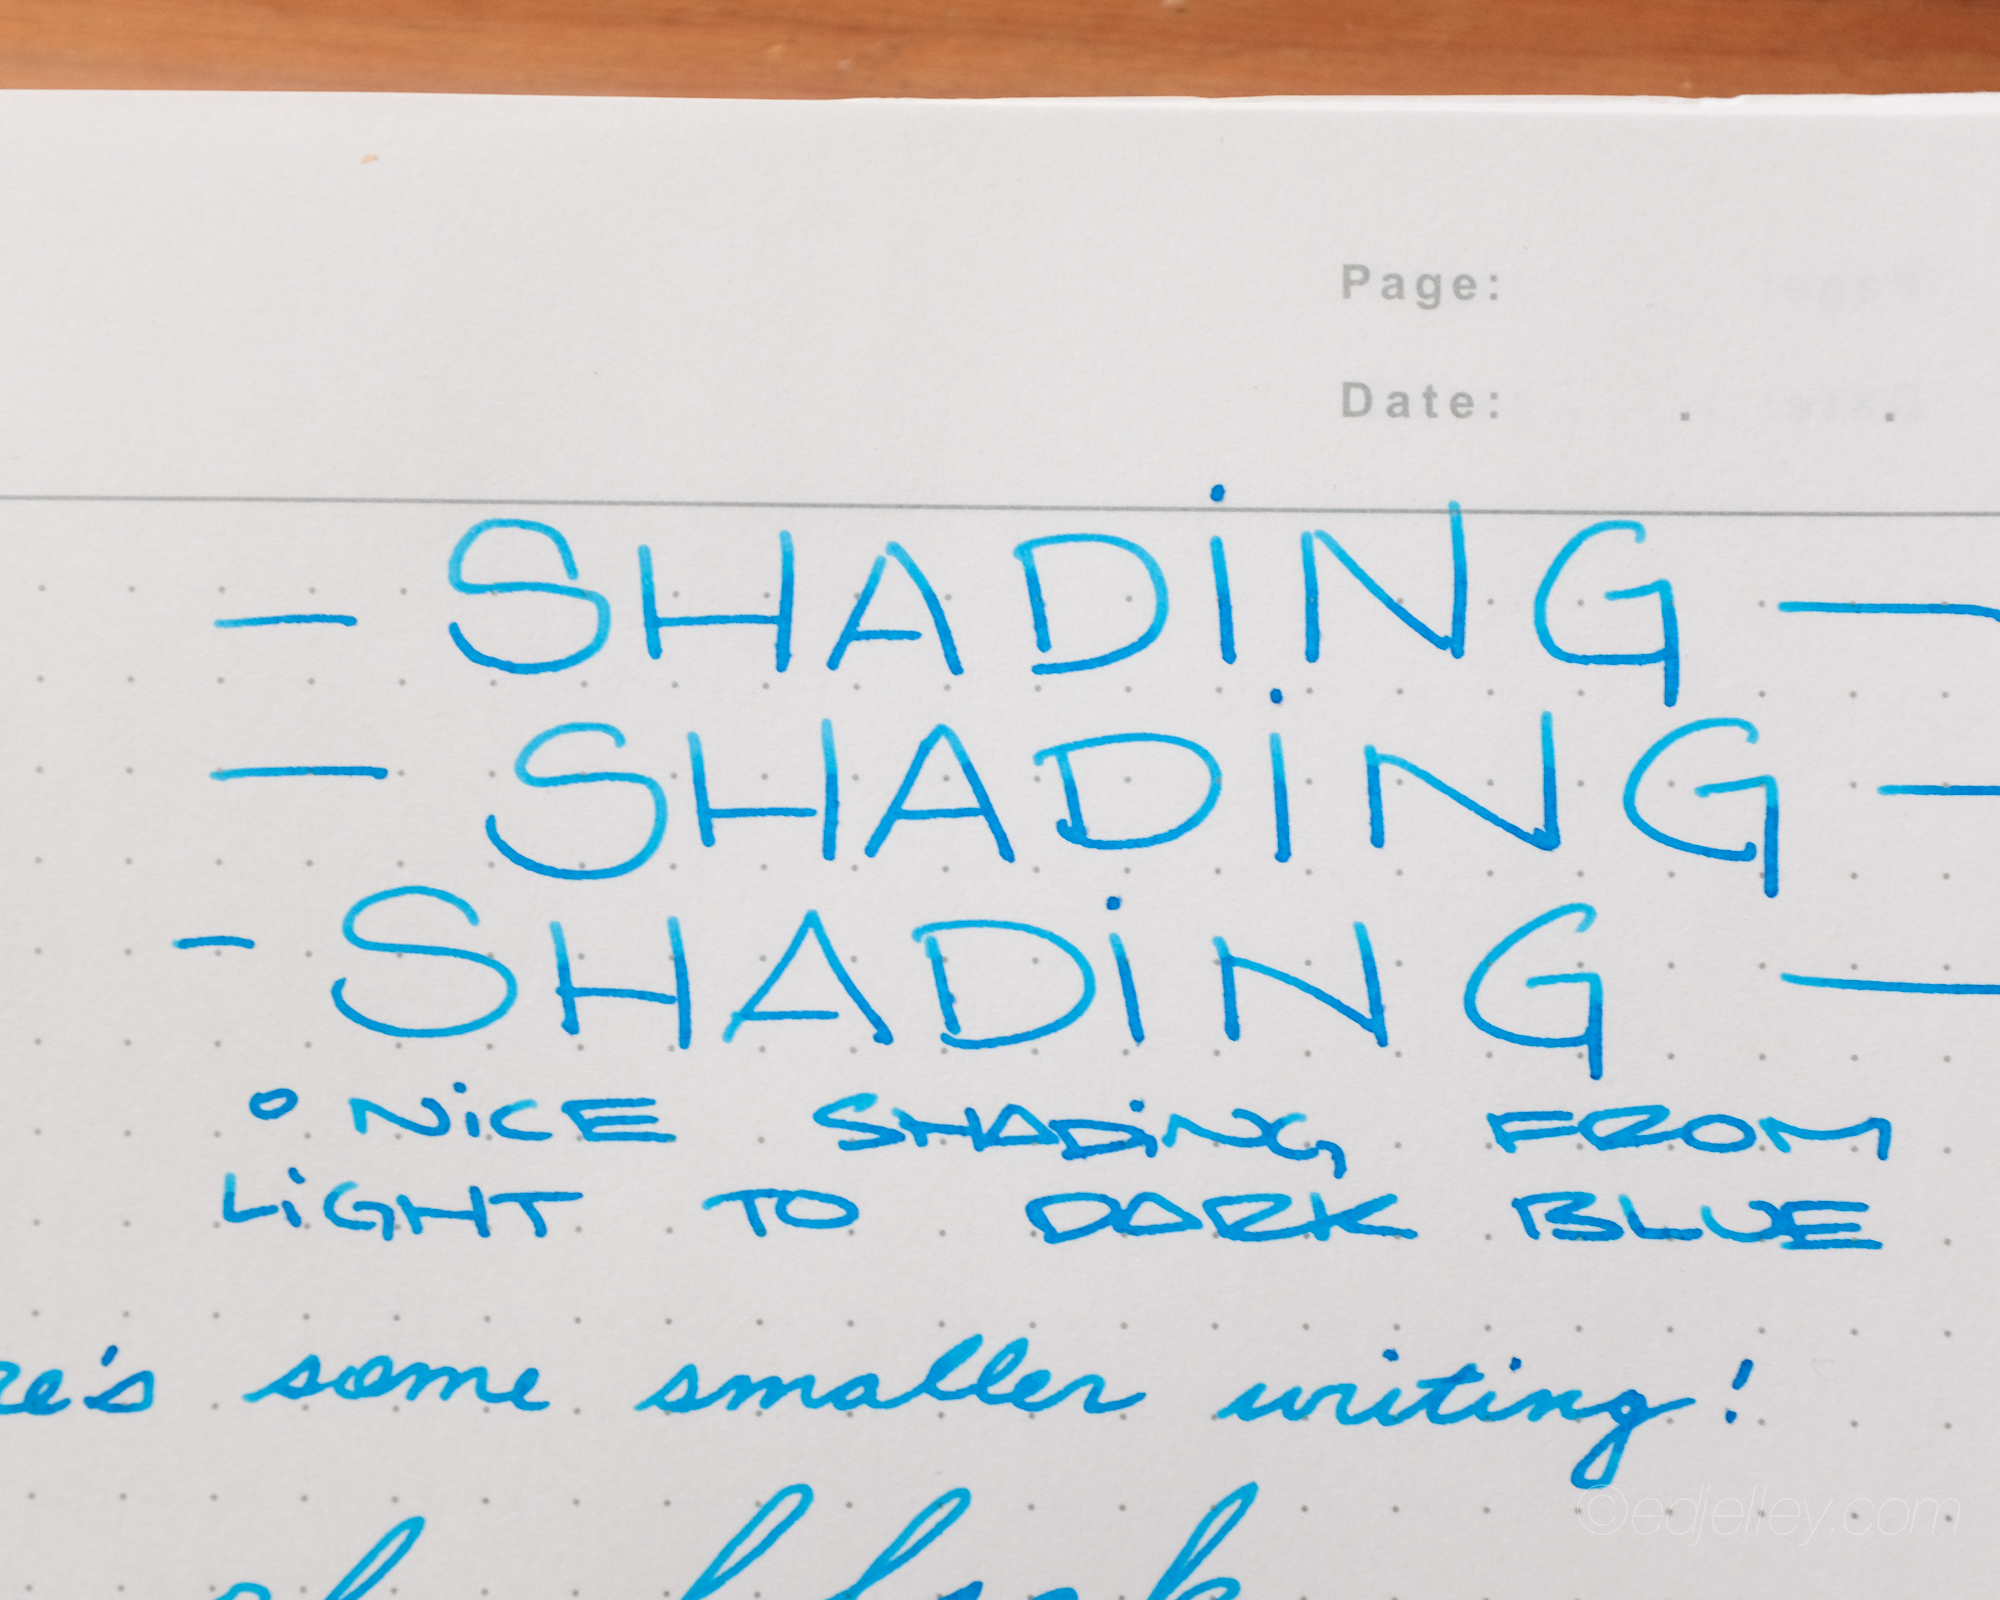 Page:
Date: . .
— SHADiNG —
— SHADiNG —
- SHADiNG —
° NiCE SHADiNG, FROM
LiGHT TO DARK BLUE
some smaller writing!
©edjelley.com